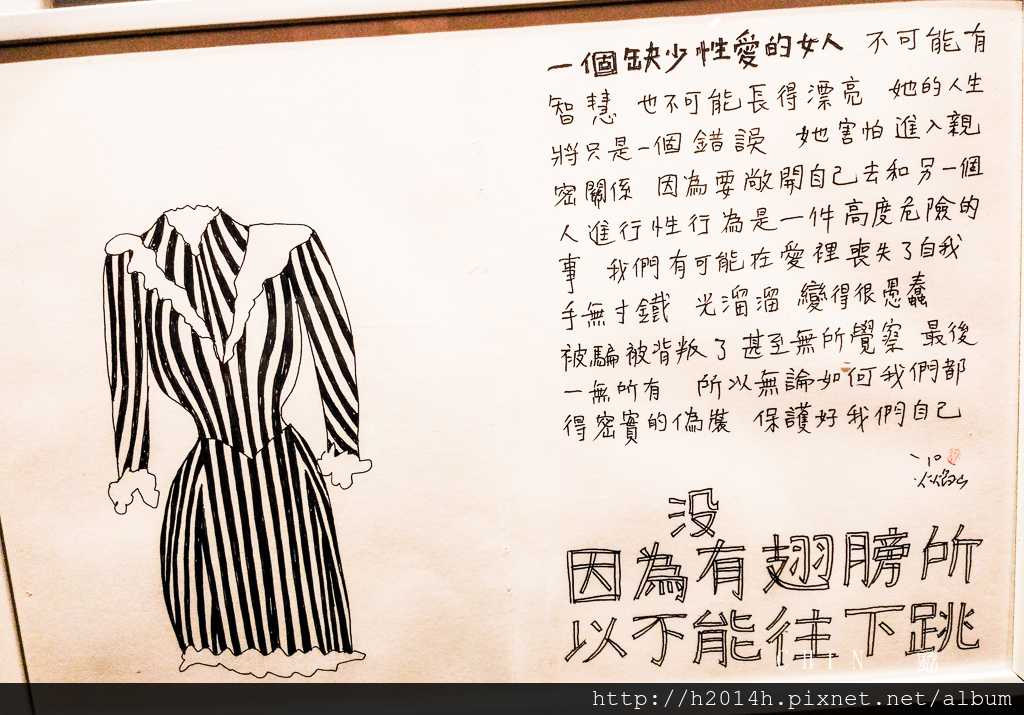 一個缺少性愛的女人 不可能有
智慧 也不可能長得漂亮 她的人生
將只是一個錯誤 她害怕進入親
密關係 因為要敞開自己去和另一個
人進行性行為是一件高度危險的
事 我們有可能在愛裡喪失了自我
手無寸鐵 光溜溜 變得很愚蠢
被騙被背叛了甚至無所覺察 最後
一無所有 所以無論如何我們都
得密實的偽裝 保護好我們自己
'10
沒
因為有翅膀所
以不能往下跳
CHIN
http://h2014h.pixnet.net/album